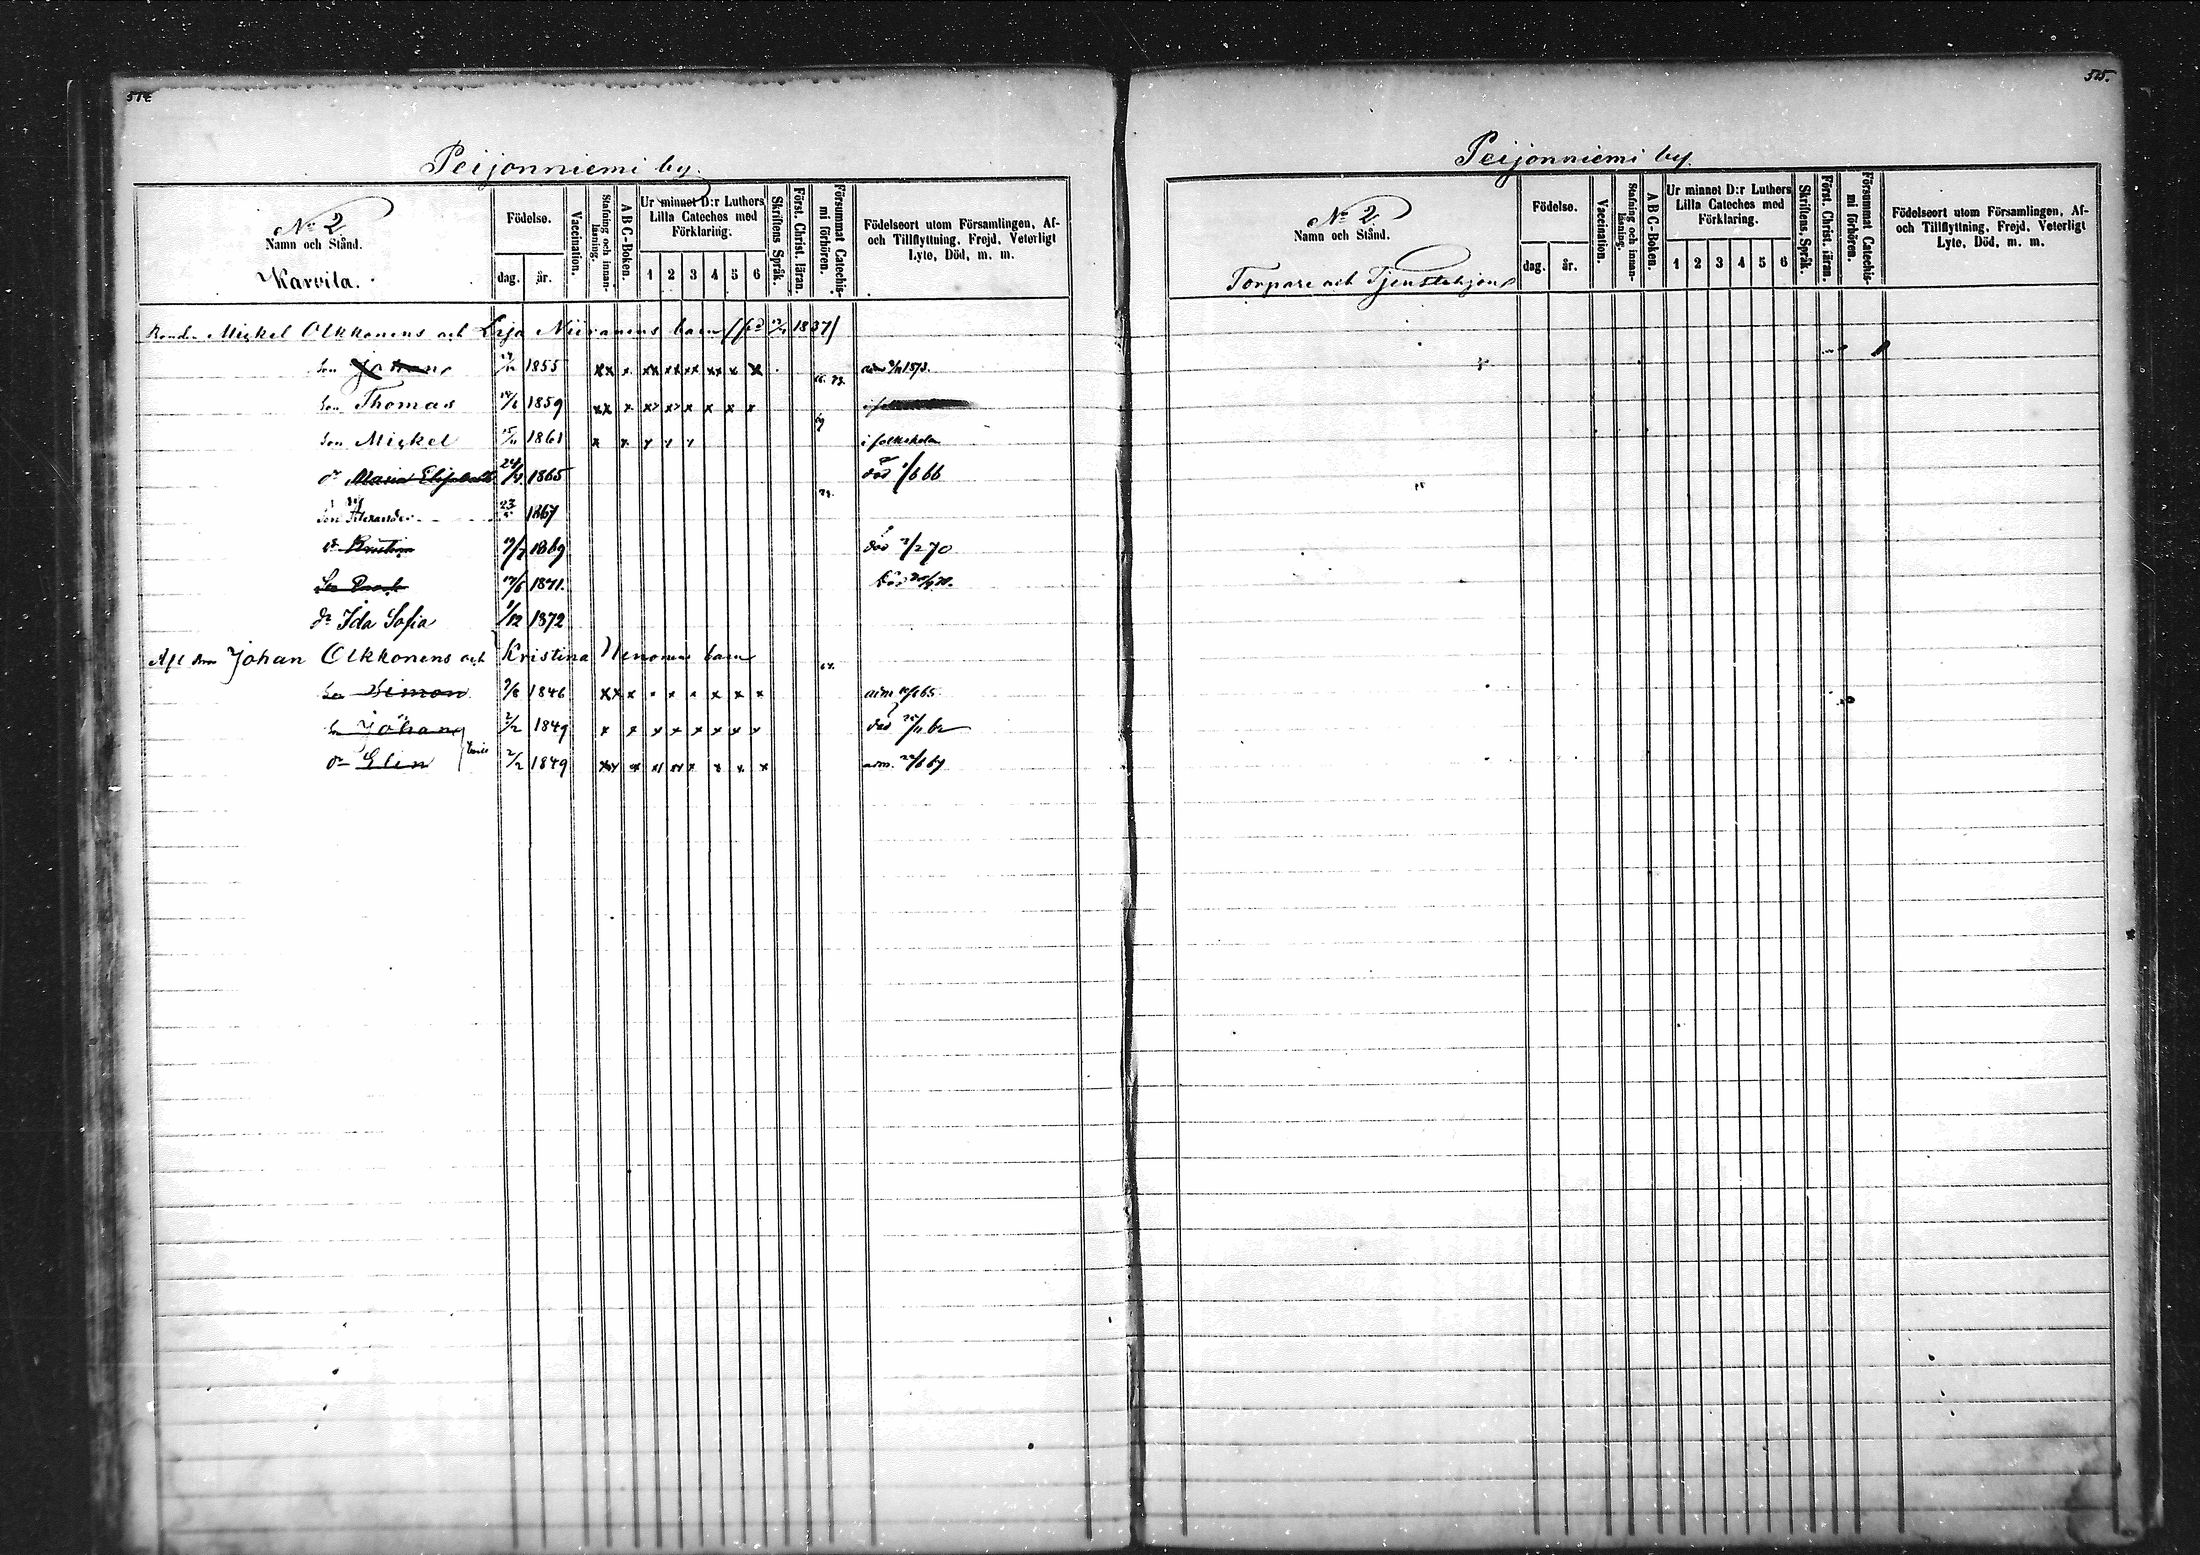 514
Peijonniemi by.
No 2
Namn och Stånd.
Warvila.
Födelse.
dag. år.
Vaccination.
Stafning och innanläsning.
ABC-Boken.
Ur minnet D:r Luthers
Lilla Cateches med
Förklaring.
1 2 3 4 5 6
Skriftens Språk.
Först. Christ. läran.
Försummat Catechismi förhören.
Födelseort utom Församlingen, Af-
och Tillflyttning, Frejd, Veterligt
Lyte, Död, m. m.
Bonden Mickel Olkkonens och Niiranens barn 1837
Son Johan 1855 xx x xx xx xx xx x x 1873.
Son Thomas 1859 xx x x x x x
Son Mickel 1861 x x x x x i folkskola
dr Maria Elisabeth 24/4 1865 död 66
Son Alexander 23 1867
dr Kristina 1869 död 2/2 70
Son 1871. död
dr Ida Sofia 1/12 1872
Afl Johan Olkkonens och Kristina barn
Son Simon 1846 xx x x x x x x x adm 65
Son Johan 2/2 1849 x x x x x x x x död 62
dr Elin 2/2 1849 xx x xx xx x x x x adm. 69
515.
Peijonniemi by.
No 2
Namn och Stånd.
Torpare och Tjenstehjon
Födelse.
dag. år.
Vaccination.
Stafning och innanläsning.
ABC-Boken.
Ur minnet D:r Luthers
Lilla Cateches med
Förklaring.
1 2 3 4 5 6
Skriftens Språk.
Först. Christ. läran.
Försummat Catechismi förhören.
Födelseort utom Församlingen, Af-
och Tillflyttning, Frejd, Veterligt
Lyte, Död, m. m.